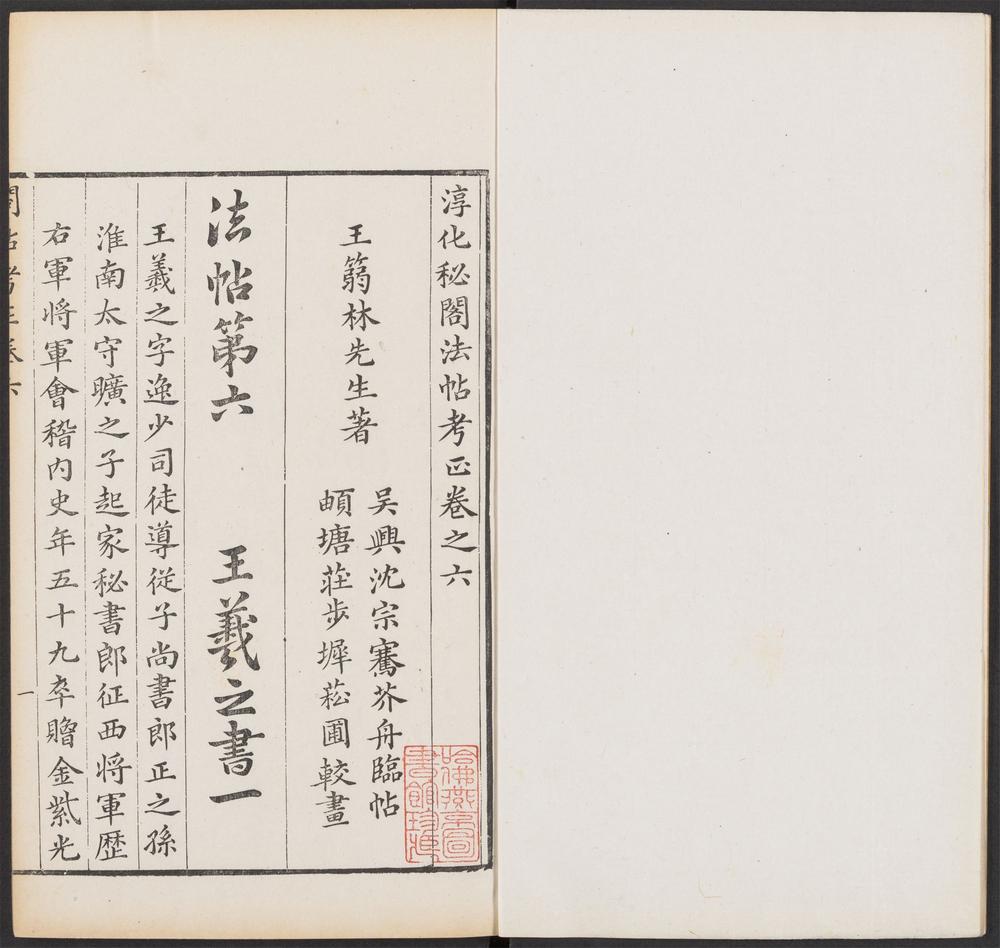 淳化秘閣法帖考正卷之六
王篛林先生著
吴興沈宗騫芥舟臨帖
頔塘莊步墀菘圃較畫
哈佛燕京圖書館珍藏
法帖第六 王羲之書一
王羲之字逸少司徒導從子尚書郎正之孫
淮南太守曠之子起家秘書郎征西將軍歷
右軍將軍會稽内史年五十九卒贈金紫光
閣帖考正卷六
一